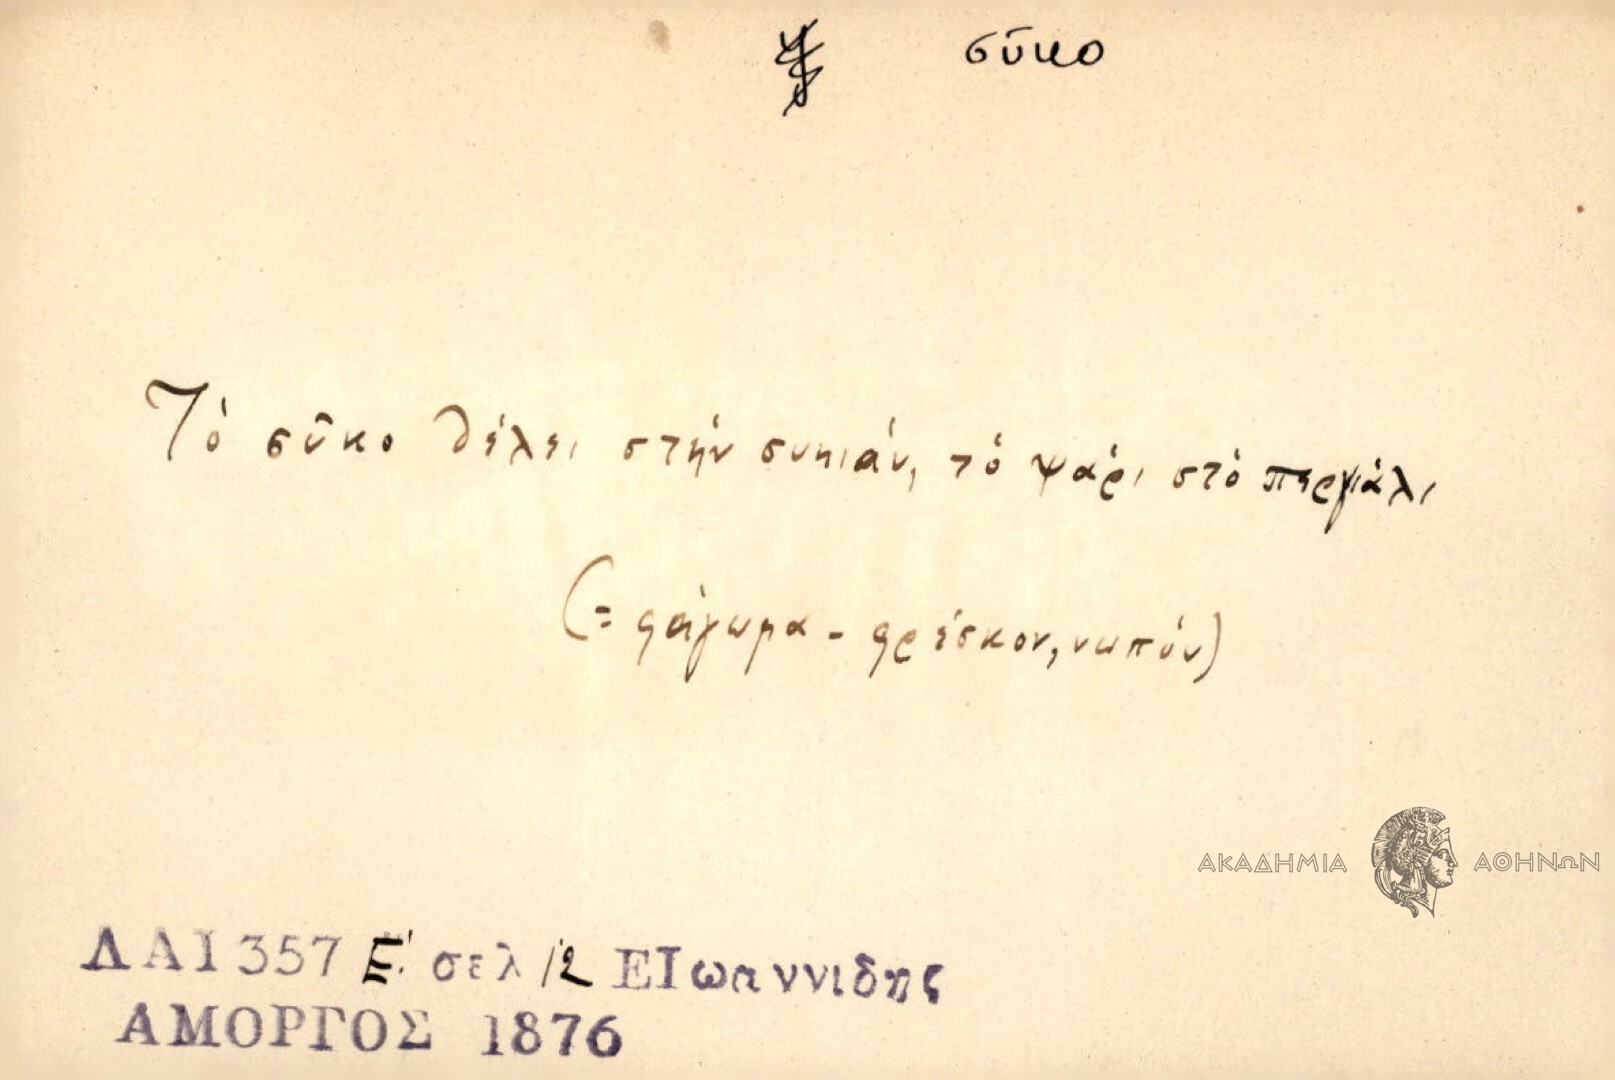 σῦκο
Τὸ σῦκο θέλει στὴν συκιάν, τὸ ψάρι στὸ περγιάλι
(= φάγωμα - φρέσκον, νωπόν)
ΑΚΑΔΗΜΙΑ ΑΘΗΝΩΝ
ΔΑΙ 357 Ε΄. σελ 12 ΕΙωαννιδης
ΑΜΟΡΓΟΣ 1876